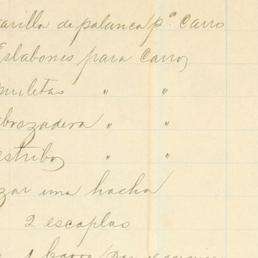 arilla de palanca pª Carro
Eslabones para Carro
muletas " "
brazadera " "
estribo " "
zar una hacha
2 escoplos
1 barra